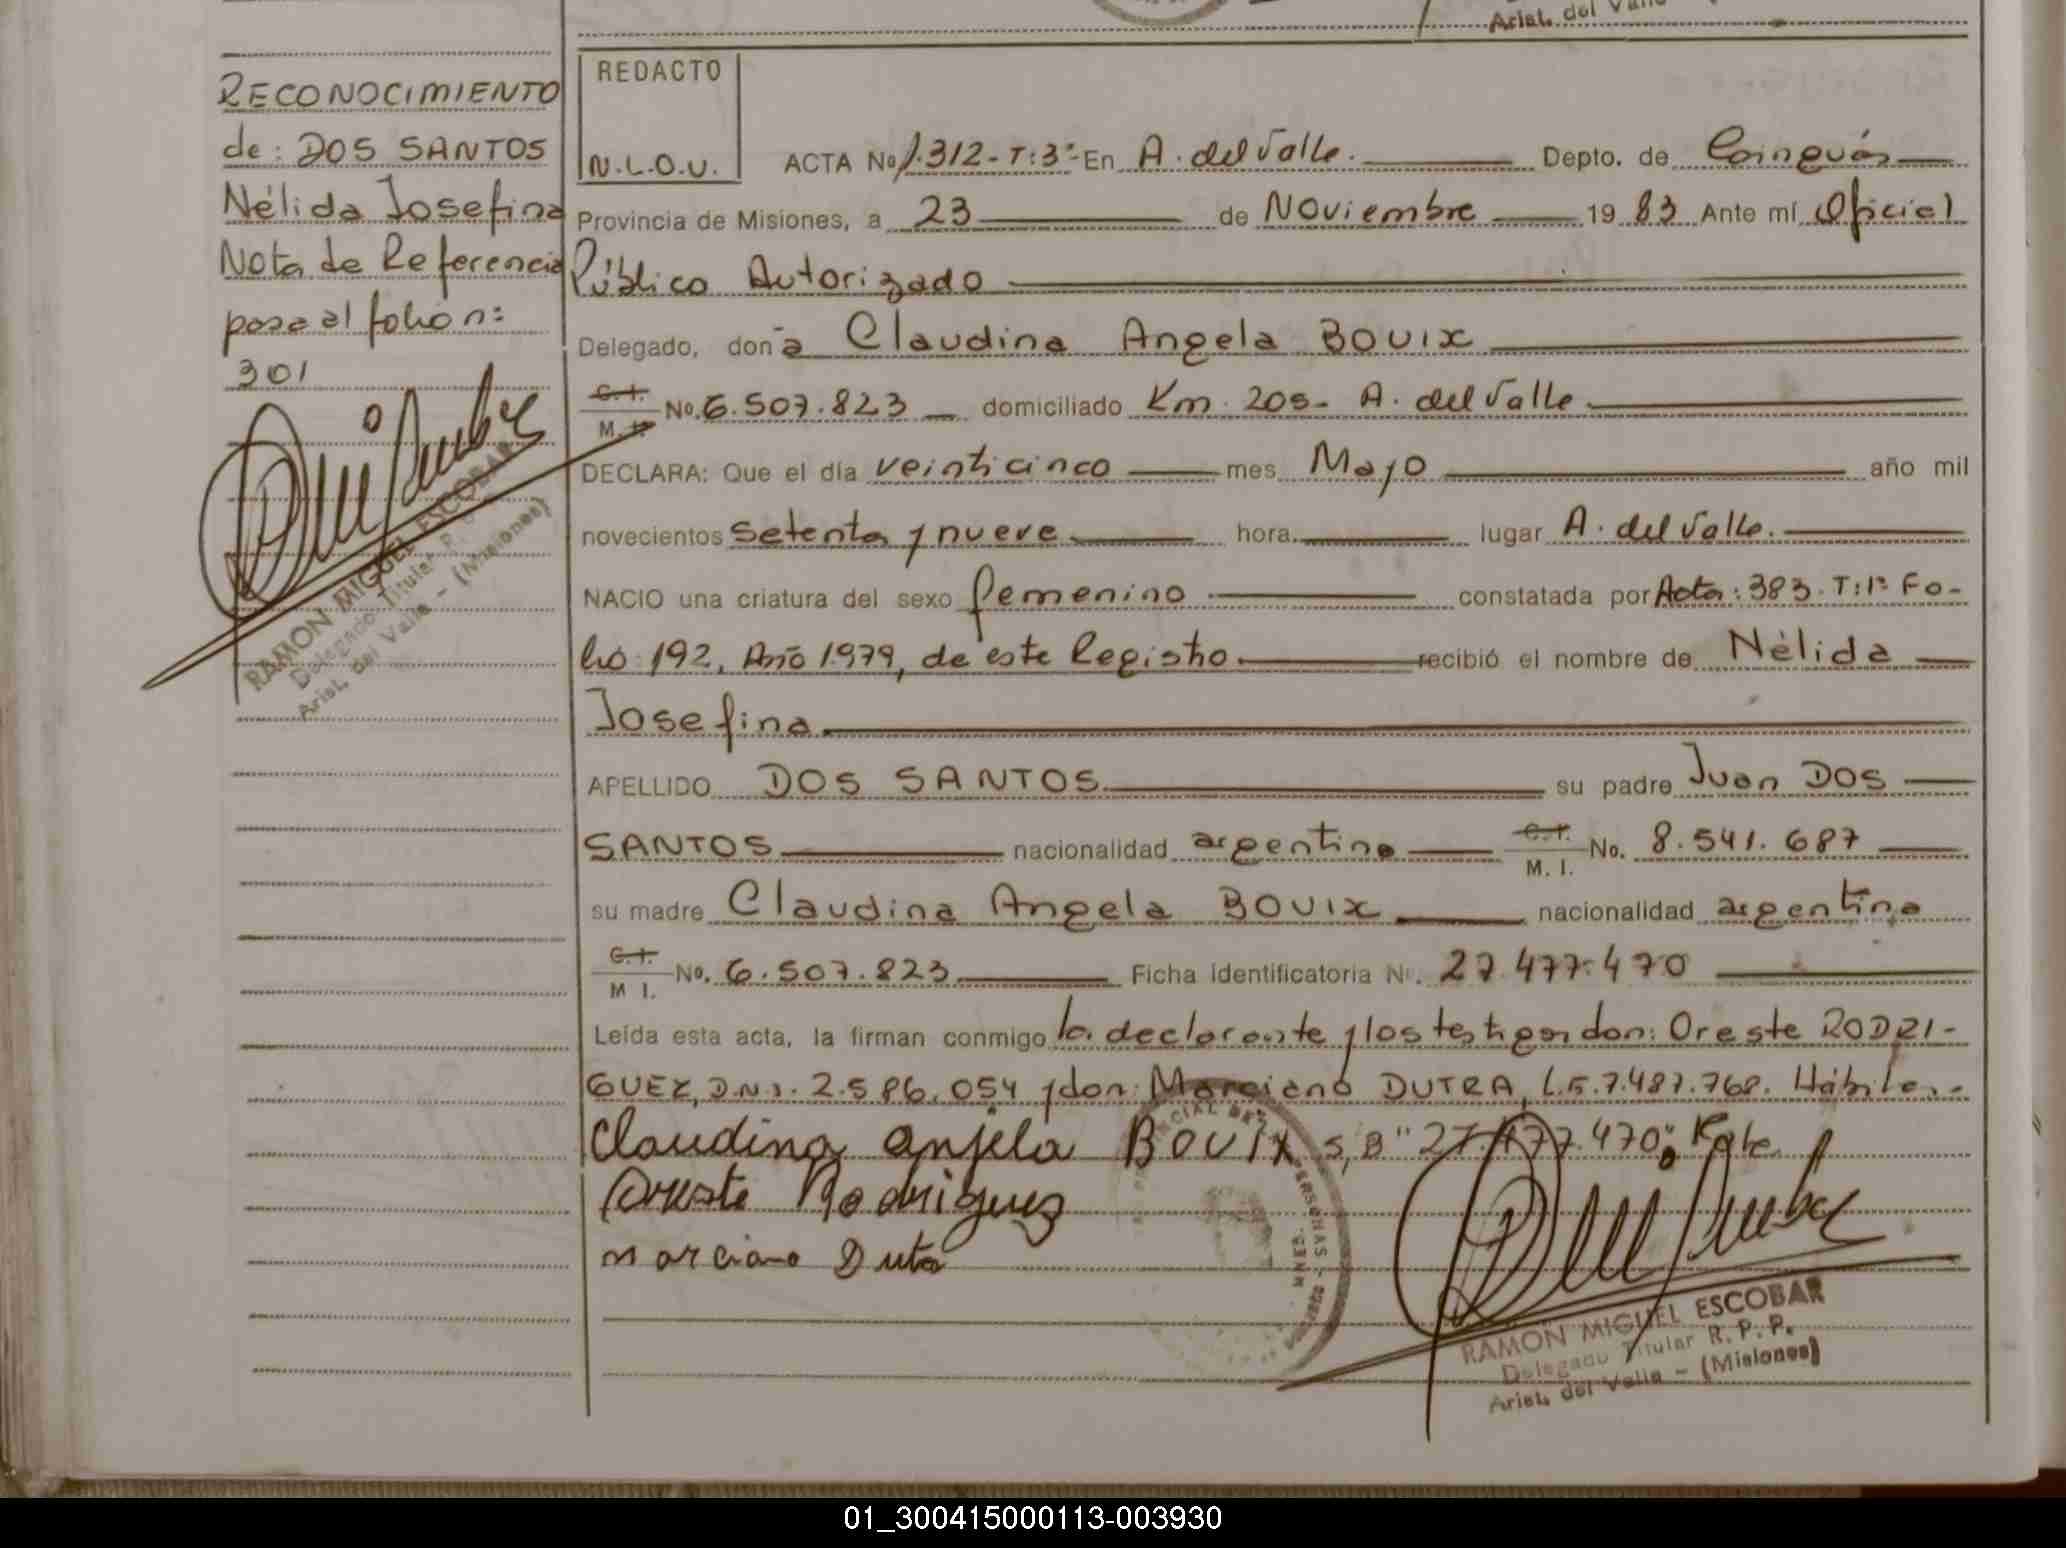 Arist. del Valle
RECONOCIMIENTO
de: DOS SANTOS
Nélida Josefina
Nota de Referencia
pasa al folio n:
301
RAMON MIGUEL ESCOBAR
Delegado Titular R. P.
Arist. del Valle - (Misiones)
REDACTO
N.L.O.U.
ACTA No 1.312 - T:3º- En A. del Valle. Depto. de Cainguás
Provincia de Misiones, a 23 de Noviembre 19 83 Ante mí Oficial
Público Autorizado
Delegado, don a Claudina Angela BOUIX
C.I. M.I. No. 6.507.823 domiciliado Km. 205- A. del Valle
DECLARA: Que el día veinticinco mes Mayo año mil
novecientos setenta y nueve hora lugar A. del Valle.
NACIO una criatura del sexo femenino constatada por Acta: 383. T:1º Fo-
lio: 192, Año 1.979, de este Registro recibió el nombre de Nélida
Josefina
APELLIDO DOS SANTOS su padre Juan DOS
SANTOS nacionalidad argentino C.I. M. I. No. 8.541.687
su madre Claudina Angela BOUIX nacionalidad argentina
C.I. M I. No. 6.507.823 Ficha identificatoria N. 27.477.470
Leída esta acta, la firman conmigo la declarante y los testigos don: Oreste RODRI-
GUEZ, D.N.I. 2.586.054 y don: Marciano DUTRA, L.E. 7.487.768. Hábiles.-
Claudina anjela BOUIX S,B "27.477.470" Vale.
Oreste Rodriguez
marciano Duta
RAMON MIGUEL ESCOBAR
Delegado Titular R. P. P.
Arist. del Valle - (Misiones)
01_300415000113-003930